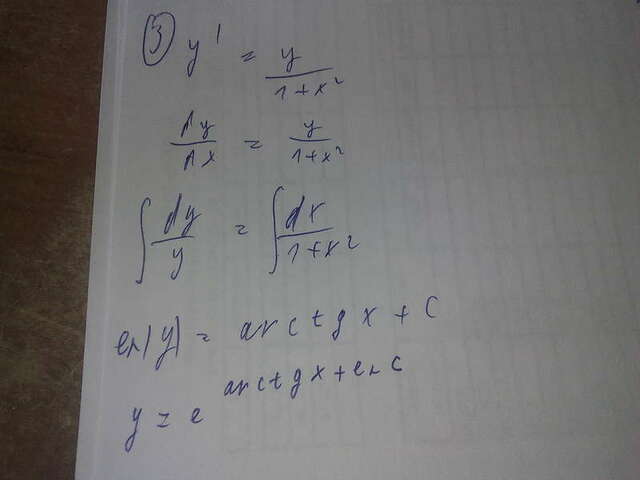 ③ y' = y/(1+x²)
dy/dx = y/(1+x²)
∫ dy/y = ∫ dx/(1+x²)
ln|y| = arctg x + C
y = e^(arctg x + ln C)